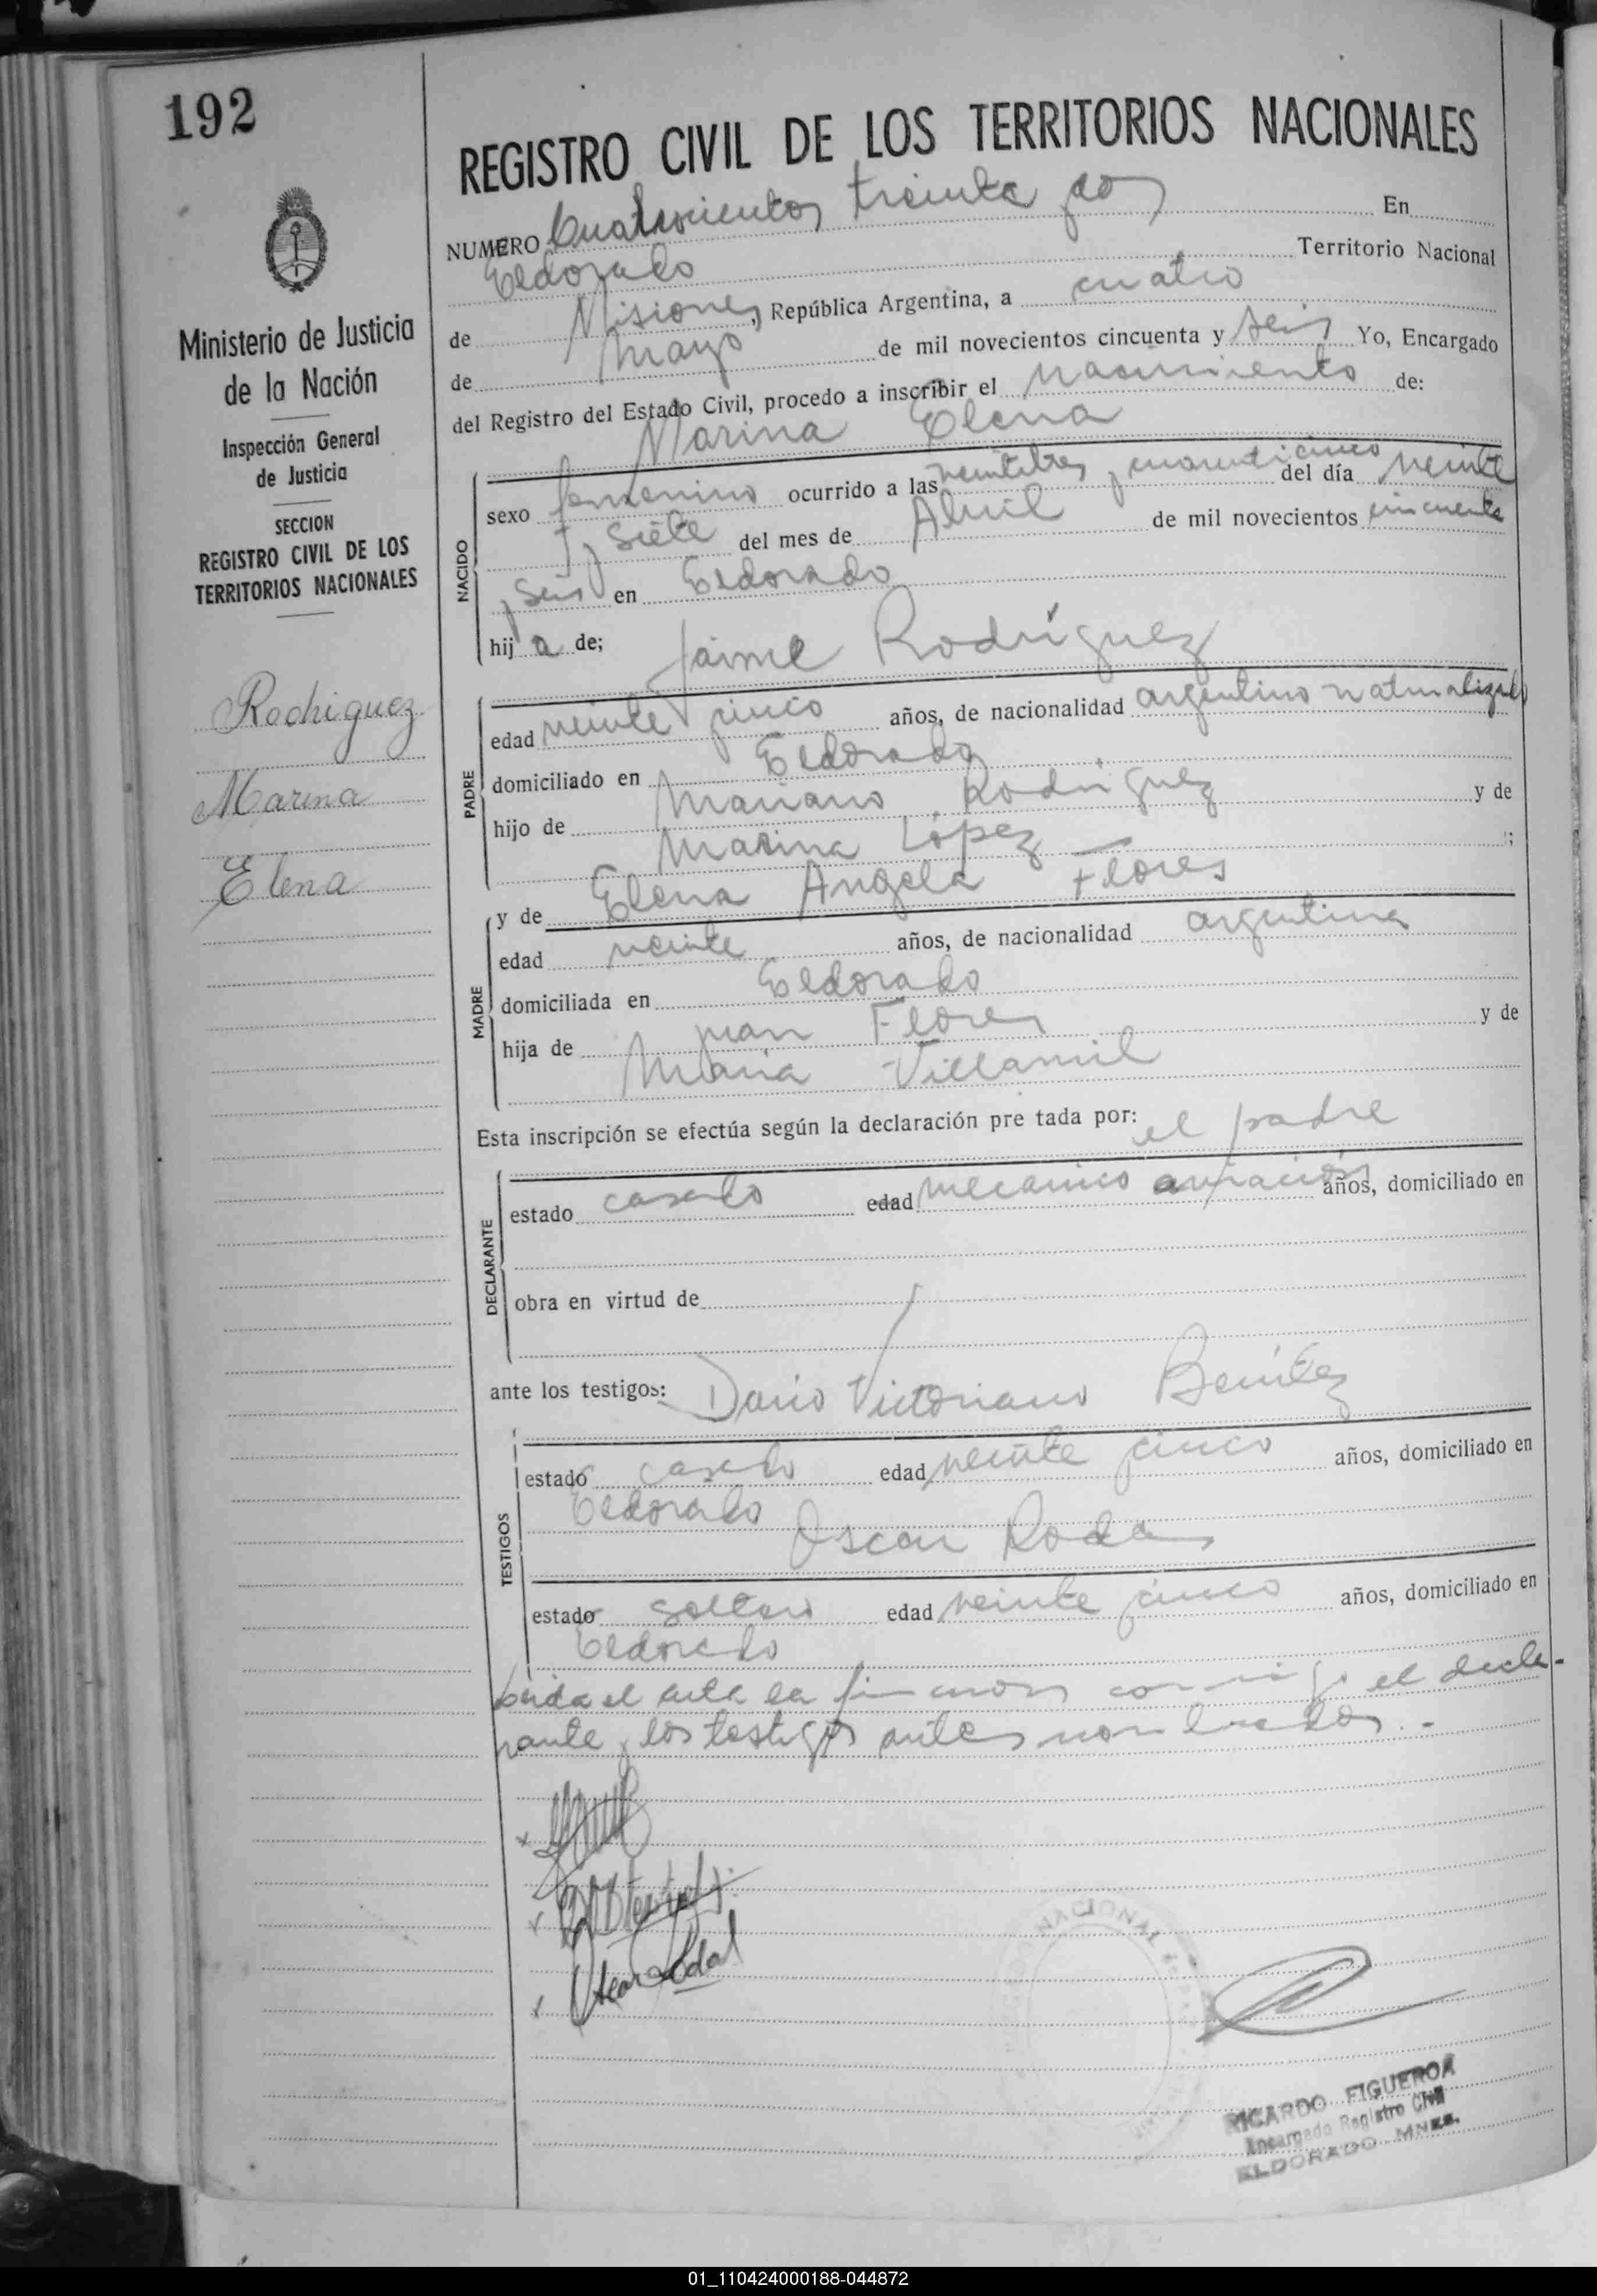 192
REGISTRO CIVIL DE LOS TERRITORIOS NACIONALES
NUMERO Cuatrocientos treinta y dos En
Eldorado Territorio Nacional
de Misiones, República Argentina, a cuatro
de Mayo de mil novecientos cincuenta y seis Yo, Encargado
del Registro del Estado Civil, procedo a inscribir el nacimiento de:
Marina Elena
Ministerio de Justicia
de la Nación
Inspección General
de Justicia
SECCION
REGISTRO CIVIL DE LOS
TERRITORIOS NACIONALES
Rodriguez
Marina
Elena
NACIDO
sexo femenino ocurrido a las veintitres y cuarenticinco del día veinte
y siete del mes de Abril de mil novecientos cincuenta
y seis en Eldorado
hij a de;
Jaime Rodríguez
PADRE
edad veinte y cinco años, de nacionalidad argentino naturalizado
domiciliado en Eldorado
hijo de Mariano Rodriguez y de
Marina López ;
y de Elena Angela Flores
MADRE
edad veinte años, de nacionalidad argentina
domiciliada en Eldorado
hija de Juan Flores y de
Maria Villamil
Esta inscripción se efectúa según la declaración pre tada por: el padre
DECLARANTE
estado casado edad mecanico aviación años, domiciliado en
obra en virtud de
ante los testigos: Dario Victoriano Benítez
TESTIGOS
estado casado edad veinte y cinco años, domiciliado en
Eldorado
Oscar Roda
estado soltero edad veinte y cinco años, domiciliado en
Eldorado
Leida el acta la firmaron conmigo el decla-
rante y los testigos antes nombrados.-
NACIONAL
RICARDO FIGUEROA
Encargado Registro Civil
ELDORADO MNES.
01_110424000188-044872